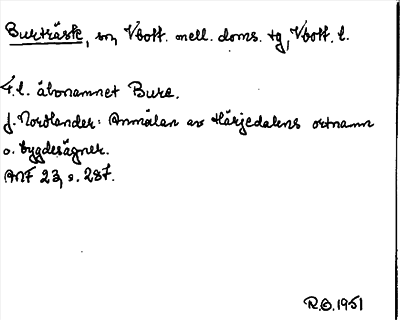 Burträsk, sn, Vbott. mell. doms. tg, Vbott. l.
F.l. åbonamnet Bure.
J. Nordlander: Anmälan av Härjedalens ortnamn
o. bygdesägner.
ANF 23, s. 287.
R.O. 1951